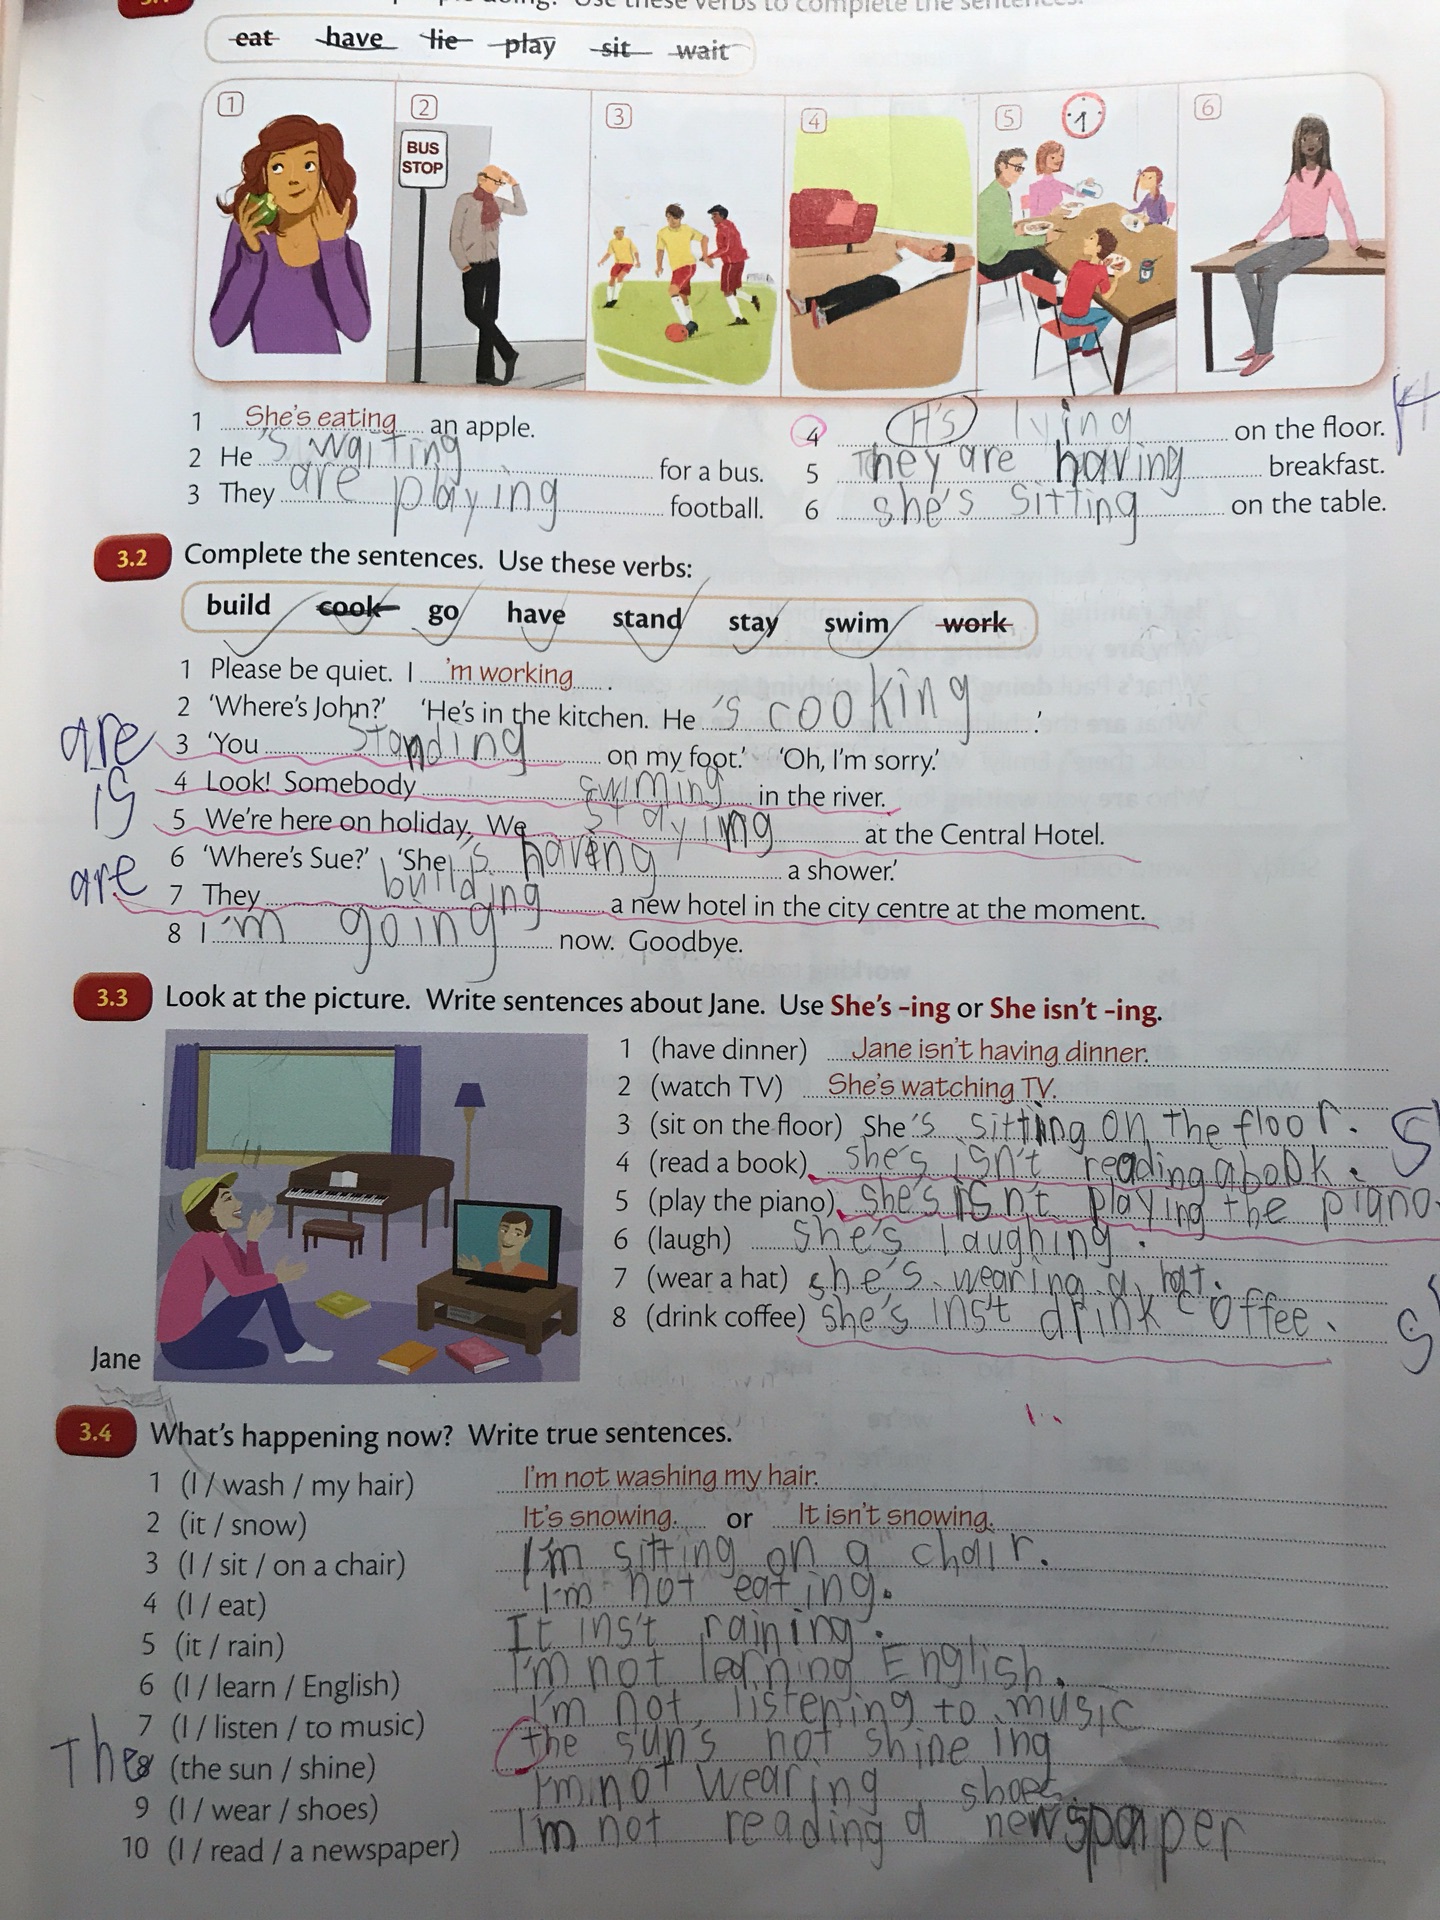 Use these verbs to complete the sentences.
eat have lie play sit wait
1 2 3 4 5 6
BUS
STOP
1 She's eating an apple.
2 He 's waiting for a bus.
3 They are playing football.
4 H's lying on the floor.
5 They are having breakfast.
6 she's sitting on the table.
3.2 Complete the sentences. Use these verbs:
build cook go have stand stay swim work
1 Please be quiet. I 'm working .
2 'Where's John?' 'He's in the kitchen. He 's cooking .'
are 3 'You standing on my foot.' 'Oh, I'm sorry.'
is 4 Look! Somebody swiming in the river.
5 We're here on holiday. We staying at the Central Hotel.
6 'Where's Sue?' 'She 's having a shower.'
are 7 They building a new hotel in the city centre at the moment.
8 I 'm going now. Goodbye.
3.3 Look at the picture. Write sentences about Jane. Use She's -ing or She isn't -ing.
1 (have dinner) Jane isn't having dinner.
2 (watch TV) She's watching TV.
3 (sit on the floor) She's sitting on the floor.
4 (read a book) she's isn't reading a book.
5 (play the piano) she's isn't playing the piano.
6 (laugh) she's laughing.
7 (wear a hat) she's wearing a hat.
8 (drink coffee) she's ins't drink coffee.
Jane
3.4 What's happening now? Write true sentences.
1 (I / wash / my hair) I'm not washing my hair.
2 (it / snow) It's snowing. or It isn't snowing.
3 (I / sit / on a chair) I'm sitting on a chair.
4 (I / eat) I'm not eating.
5 (it / rain) It ins't raining.
6 (I / learn / English) I'm not learning English.
7 (I / listen / to music) I'm not listening to music
The 8 (the sun / shine) the sun's not shine ing
9 (I / wear / shoes) I'm not wearing shoes.
10 (I / read / a newspaper) I'm not reading a newspaper